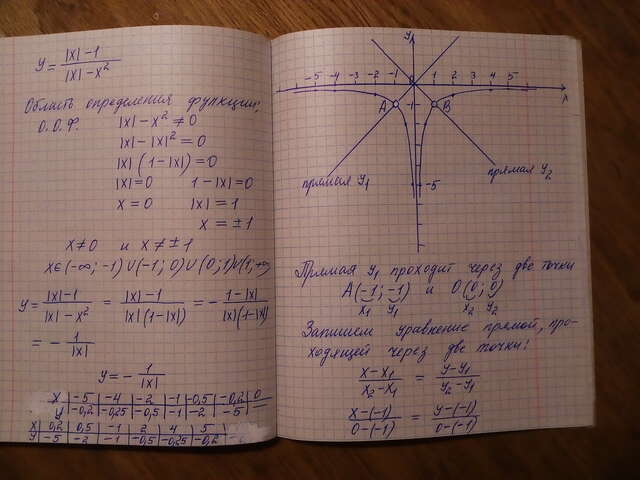 y = |x|-1 / |x|-x²
Область определения функции;
О.О.Ф. |x|-x² ≠ 0
|x|-|x|² = 0
|x|(1-|x|) = 0
|x| = 0 1-|x| = 0
x = 0 |x| = 1
x = ±1
x ≠ 0 и x ≠ ±1
x∈(-∞; -1)∪(-1; 0)∪(0; 1)∪(1; +∞)
y = |x|-1 / |x|-x² = |x|-1 / |x|(1-|x|) = - 1-|x| / |x|(1-|x|)
= - 1 / |x|
y = - 1 / |x|
x -5 -4 -2 -1 -0,5 -0,2 0
y -0,2 -0,25 -0,5 -1 -2 -5
x 0,2 0,5 -1 2 4 5
y -5 -2 -1 -0,5 -0,25 -0,2
y
-5 -4 -3 -2 -1 0 1 2 3 4 5 x
A -1 B
прямая y₁ -5 прямая y₂
Прямая y₁ проходит через две точки
A(-1; -1) и O(0; 0)
x₁ y₁ x₂ y₂
Запишем уравнение прямой, про-
ходящей через две точки:
x-x₁ / x₂-x₁ = y-y₁ / y₂-y₁
x-(-1) / 0-(-1) = y-(-1) / 0-(-1)